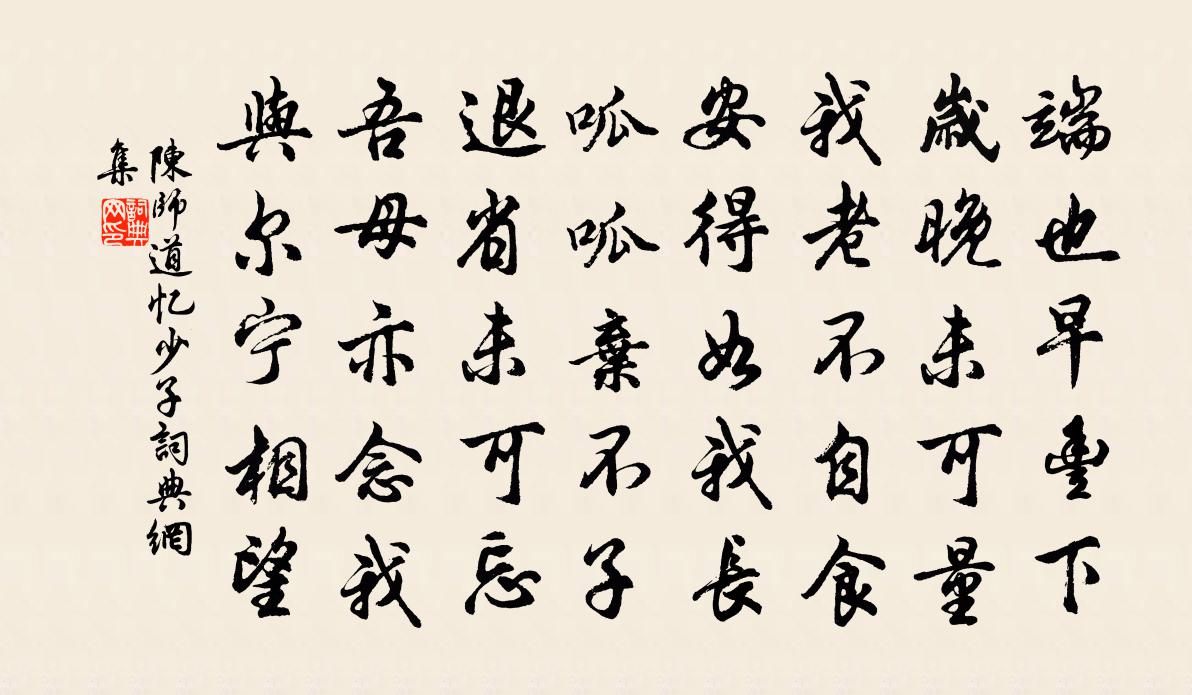 端也早豐下
歲晚未可量
我老不自食
安得如我長
呱呱棄不子
退省未可忘
吾母亦念我
與尔宁相望
陳師道忆少子詞典網
集
詞典
网印